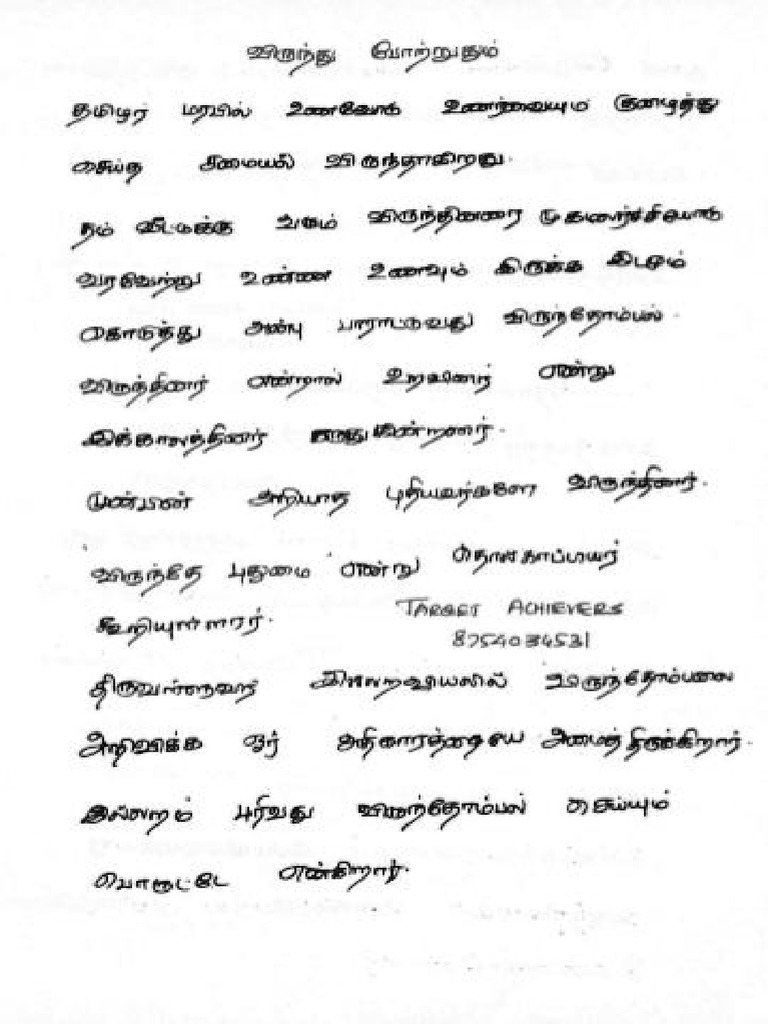 விருந்து போற்றுதும்
தமிழர் மரபில் உணவோடு உணர்வையும் குழைத்து
செய்த சமையல் விருந்தாகிறது.
நம் வீட்டுக்கு வரும் விருந்தினரை முகமலர்ச்சியோடு
வரவேற்று உண்ண உணவும் இருக்க இடமும்
கொடுத்து அன்பு பாராட்டுவது விருந்தோம்பல்.
விருந்தினர் என்றால் உறவினர் என்று
இக்காலத்தினர் கருதுகின்றனர்.
முன்பின் அறியாத புதியவர்களே விருந்தினர்.
விருந்தே புதுமை என்று தொல்காப்பியர்
கூறியுள்ளார்.
TARGET ACHIEVERS
8754034531
திருவள்ளுவர் இல்லறவியலில் விருந்தோம்பலை
அறிவிக்க ஓர் அதிகாரத்தையே அமைத்திருக்கிறார்.
இல்லறம் புரிவது விருந்தோம்பல் செய்யும்
பொருட்டே என்கிறார்.